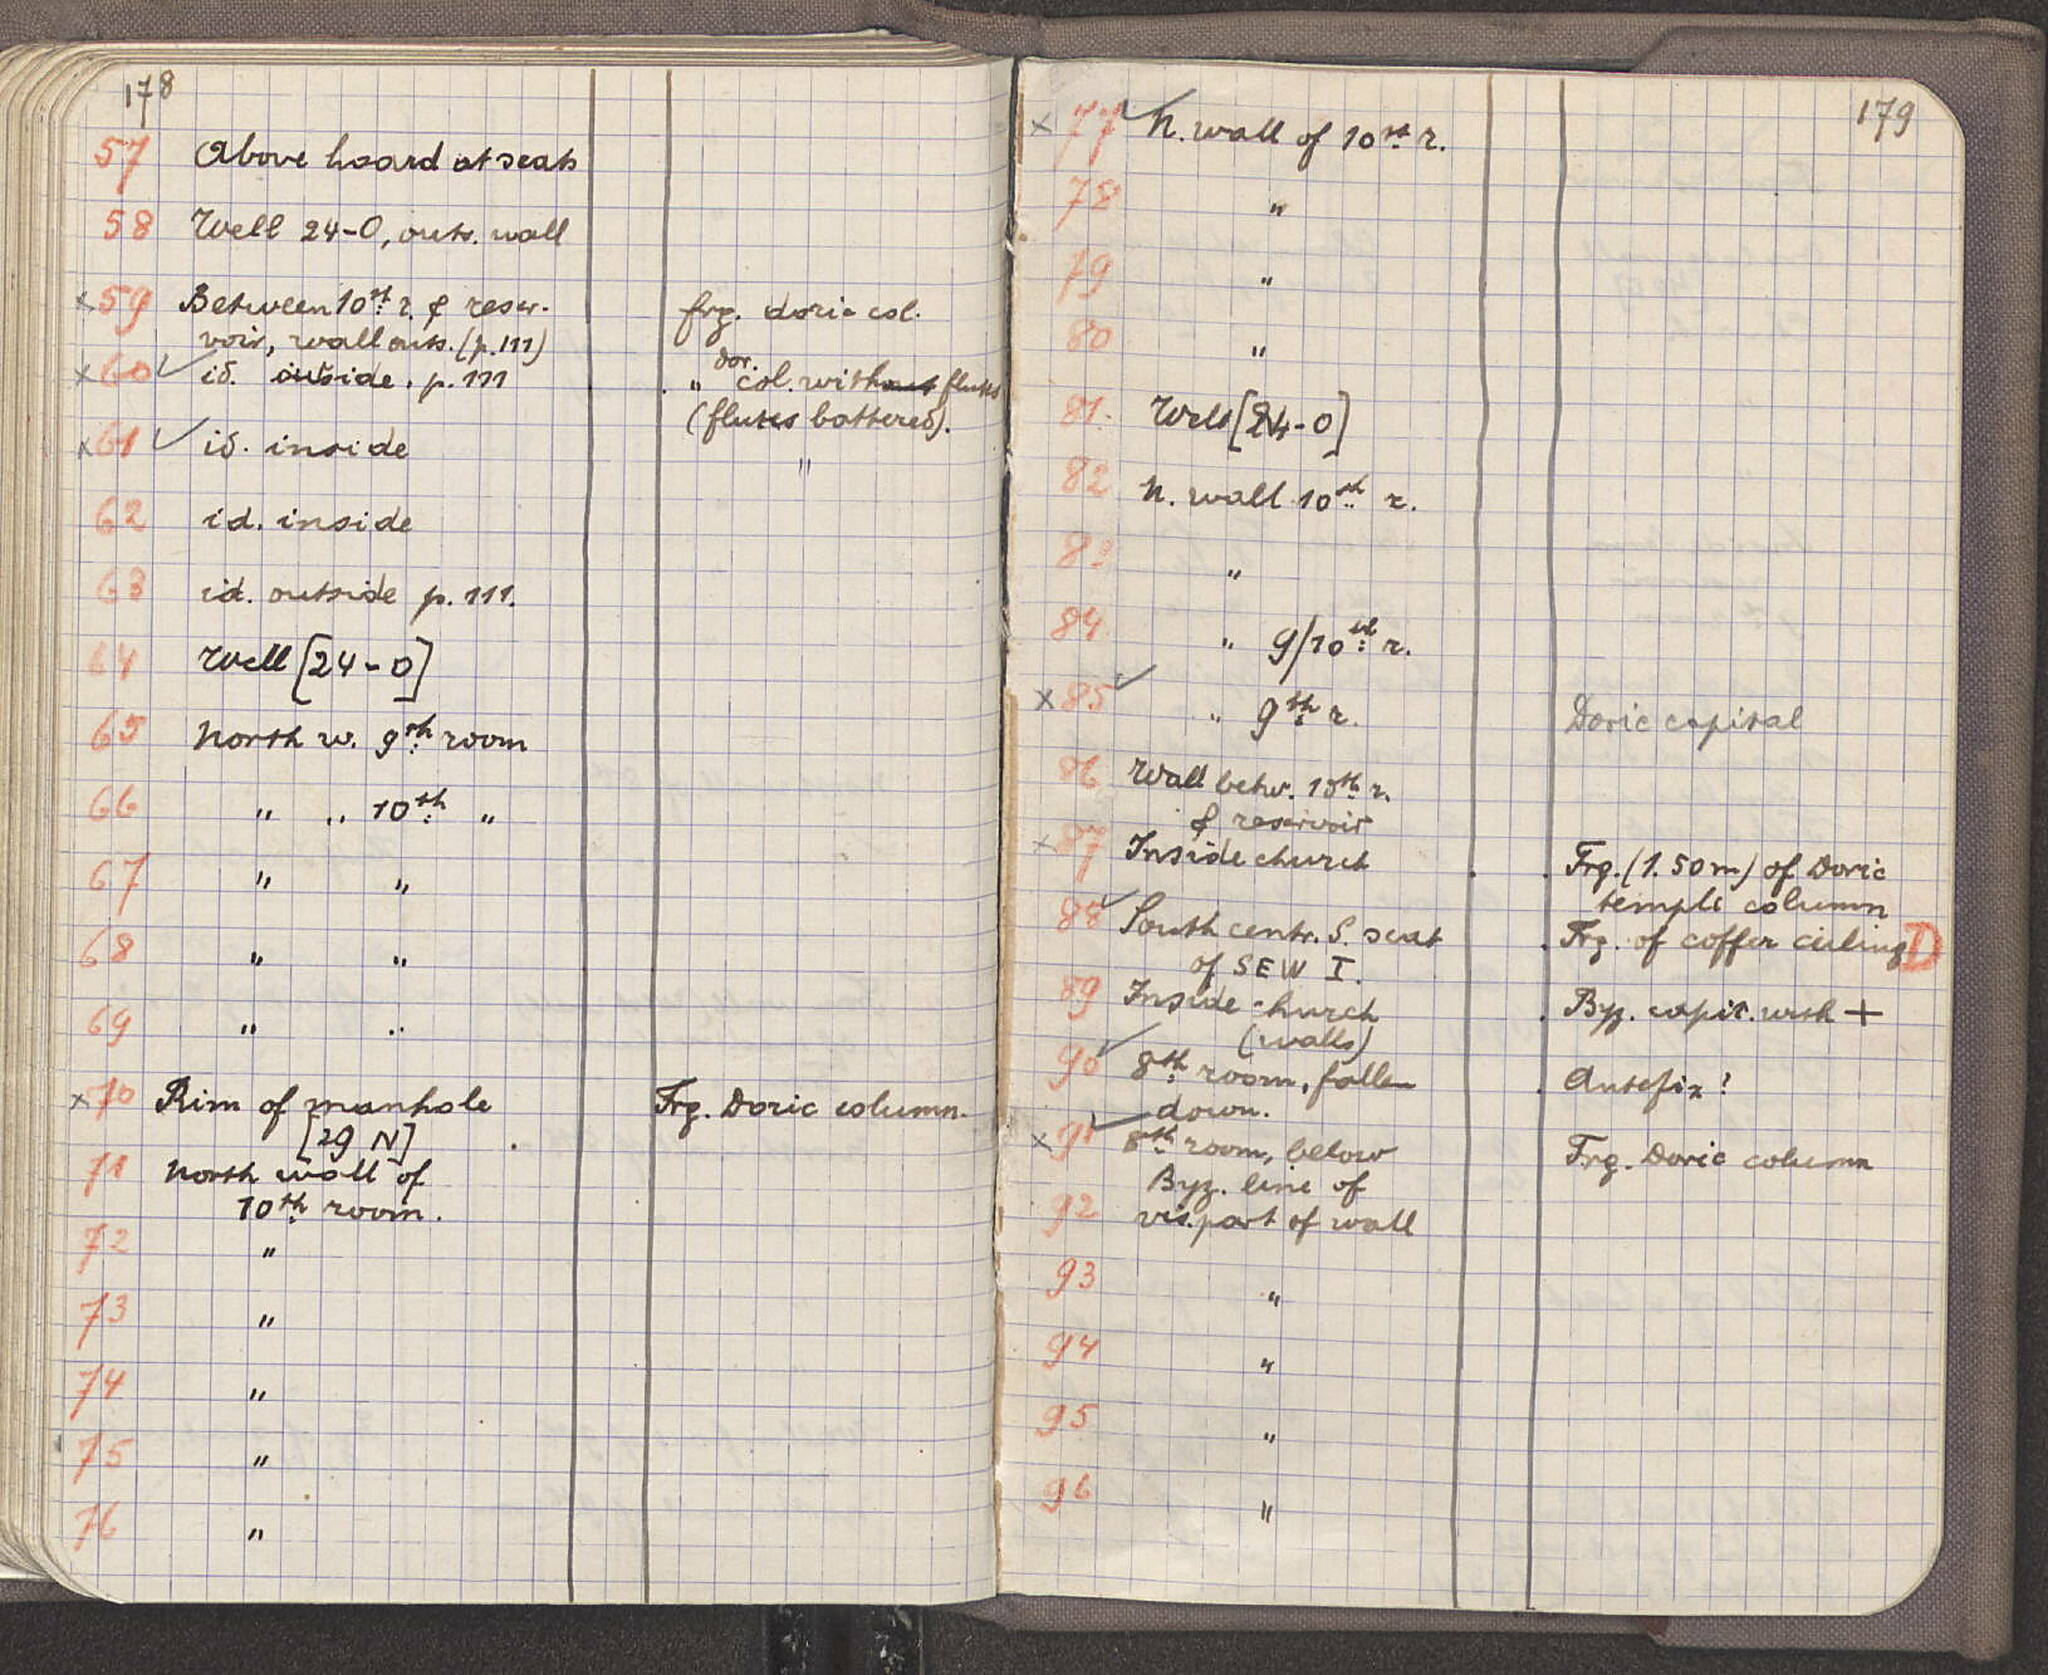 178
57 Above hoard at seats
58 Well 24-O, outs. wall
× 59 Between 10th r. & reser- frg. doric col.
voir, wall outs. (p. 111)
× 60 ✓ id. outside. p. 111 " dor. col. without flutes
(flutes battered).
× 61 ✓ id. inside "
62 id. inside
63 id. outside p. 111.
64 Well [24-O]
65 North w. 9th room
66 " " 10th "
67 " "
68 " "
69 " "
× 70 Rim of manhole Frg. Doric column.
[29 N]
71 North wall of
10th room.
72 "
73 "
74 "
75 "
76 "
179
× 77 ✓ N. wall of 10th r.
78 "
79 "
80 "
81. Well [24-O]
82 N. wall 10th r.
83 "
84 " 9/10th r.
× 85 ✓ " 9th r. Doric capital
86 Wall betw. 10th r.
& reservoir
× 87 Inside church Frg. (1.50 m) of Doric
temple column
88 ✓ South centr. S. seat Frg. of coffer ceiling D
of SEW I.
89 Inside church Byz. capit. with +
(walls)
90 ✓ 8th room, fallen Antefix?
down.
× 91 ✓ 8th room, below Frg. Doric column
Byz. line of
92 vis. part of wall
93 "
94 "
95 "
96 "